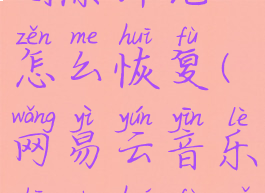 zěn me huī fù
怎么恢复(
wǎng yì yún yīn lè
网易云音乐